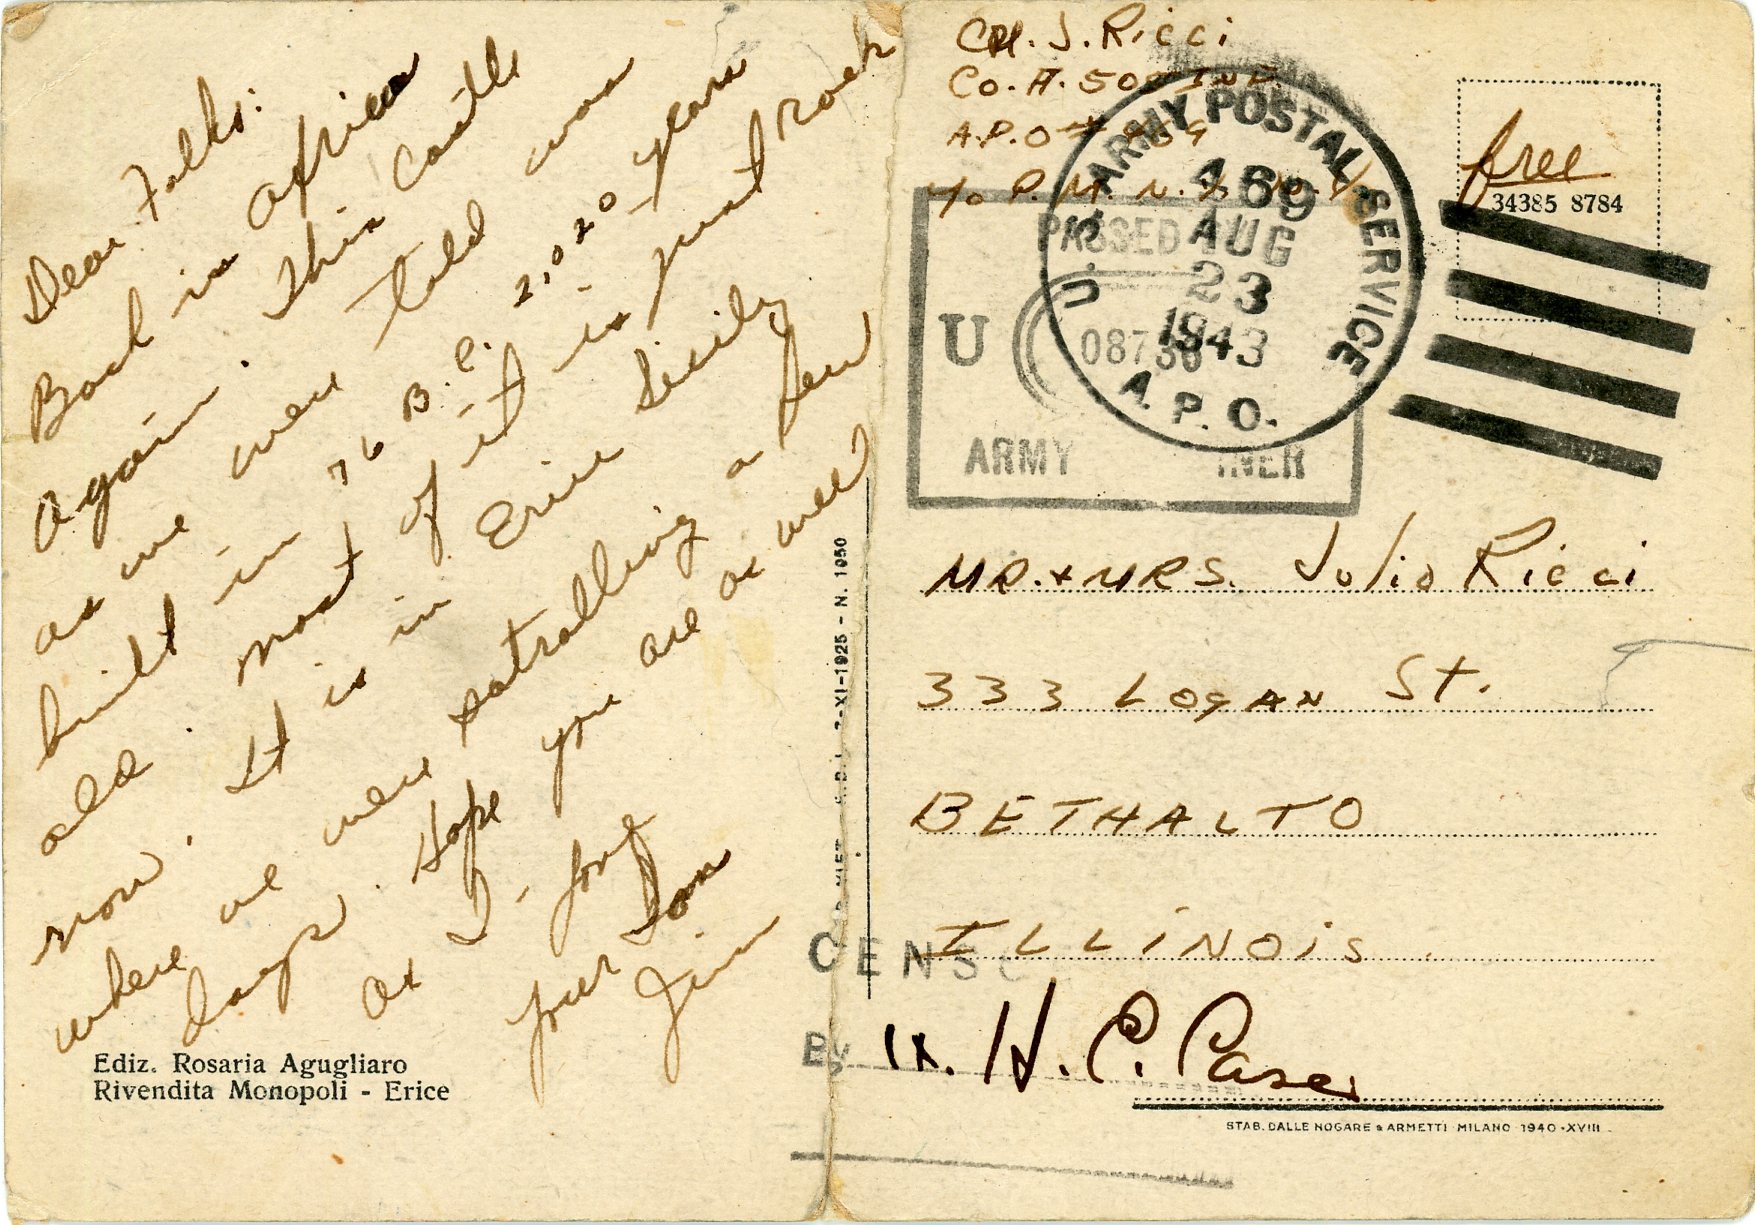 Dear Folks:
Back in Africa
again. This Castle
as we were told was
built in 76 B.C. 2,020 years
old. Most of it is just rock
now. It is in Erice Sicily
where we were patrolling a few
days. Hope you are as well
as I - Love
Your Son
Jim
Ediz. Rosaria Agugliaro
Rivendita Monopoli - Erice
7-XI-1925 - N. 1050
Cpl. J. Ricci
Co. A. INF.
A.P.O. #469
c/o P.M. N.Y. N.Y.
free
34385 8784
U.S. ARMY POSTAL SERVICE
469
AUG
23
1943
A.P.O.
PASSED
U
ARMY
MR. + MRS. Julio Ricci
333 LOGAN St.
BETHALTO
ILLINOIS
CENSO
By H. C. Case
STAB. DALLE NOGARE & ARMETTI MILANO 1940-XVIII